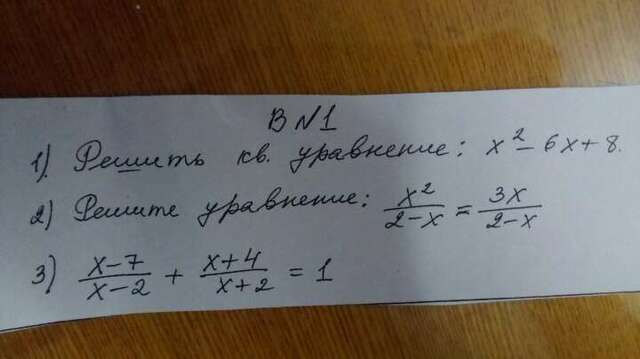 В N 1
1). Решить кв. уравнение: x² - 6x + 8.
2) Решите уравнение: x²/(2-x) = 3x/(2-x)
3) (x-7)/(x-2) + (x+4)/(x+2) = 1